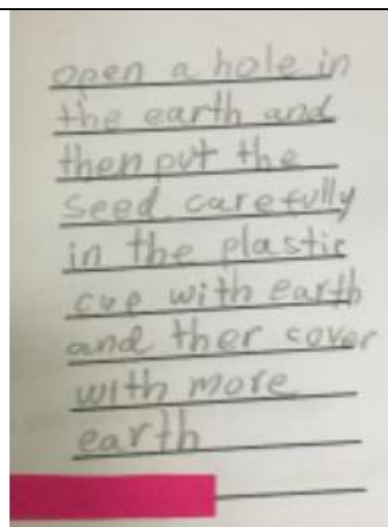 open a hole in
the earth and
then put the
seed carefully
in the plastic
cup with earth
and ther cover
with more
earth